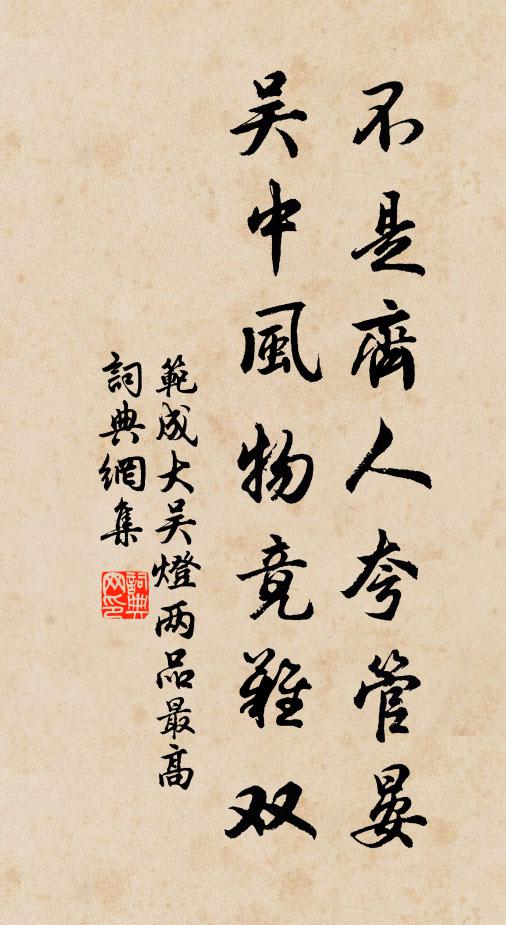 不是齊人夸管晏
吳中風物竟難双
範成大吴燈两品最高
詞典網集
詞典网印